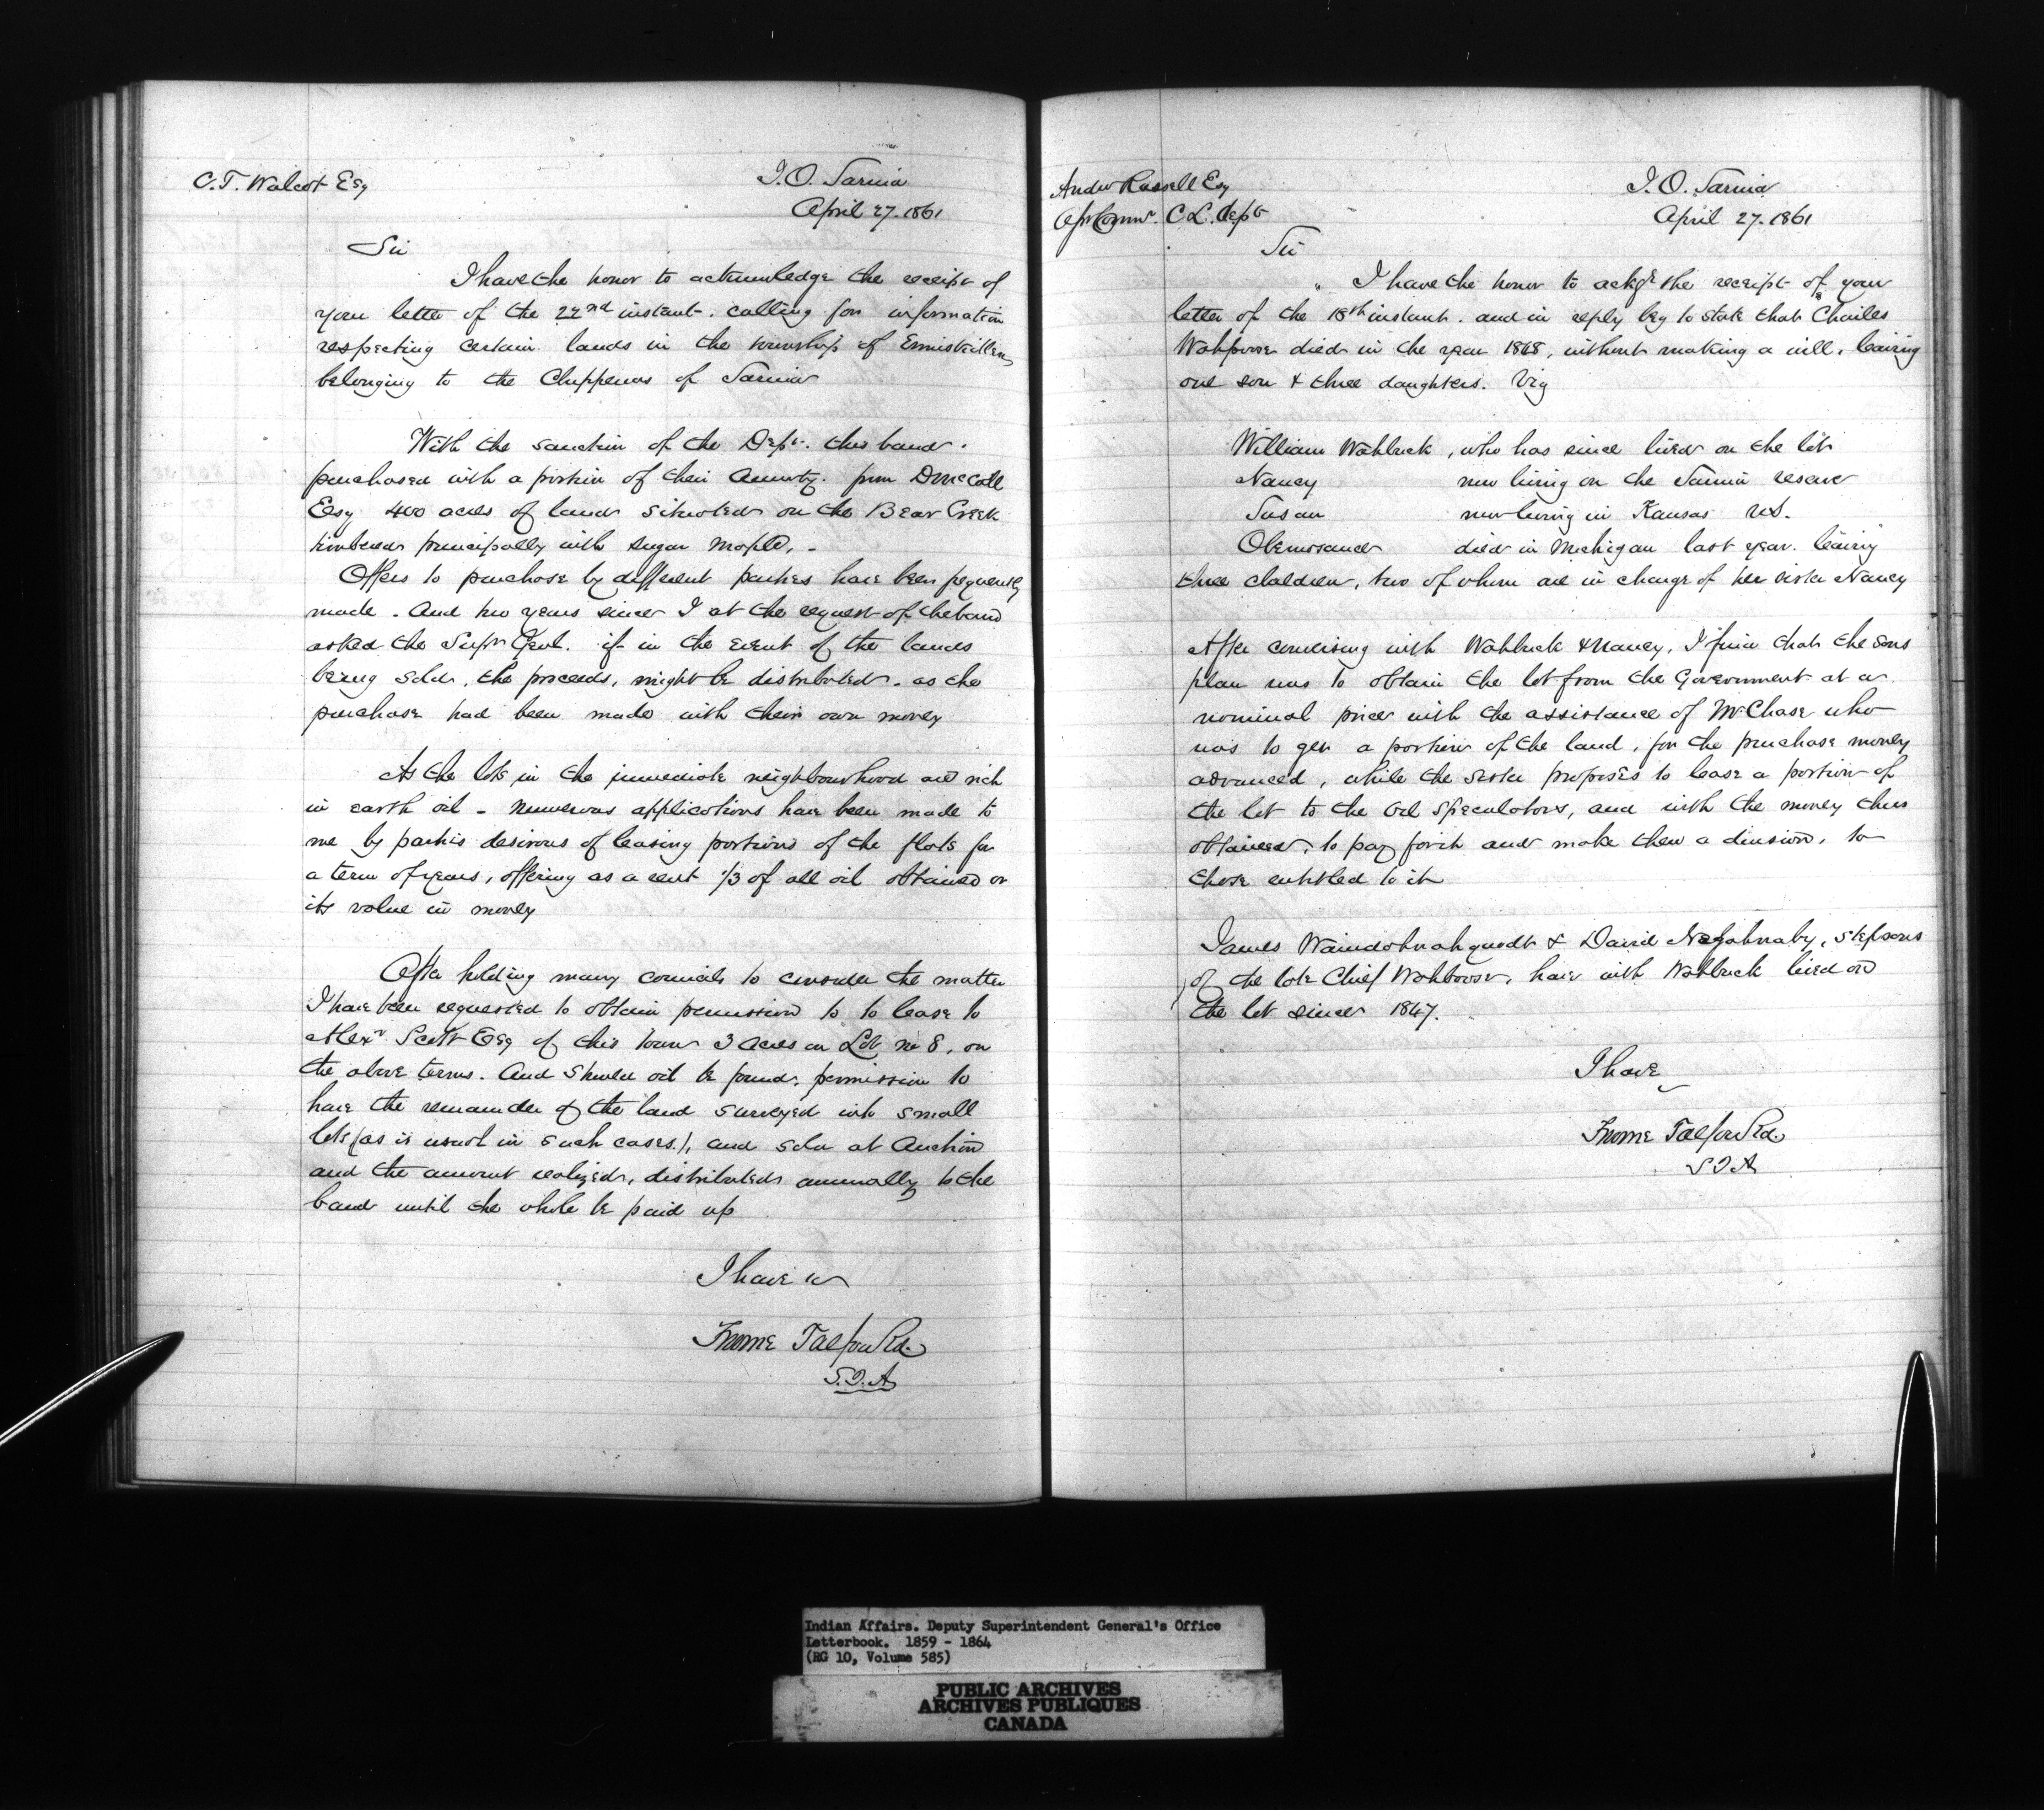 C.T. Walcot Esq
I.O. Sarnia
April 27. 1861
Sir
I have the honor to acknowledge the receipt of
your letter of the 22nd instant. calling for information
respecting certain lands in the township of Enniskillen
belonging to the Chippewas of Sarnia
With the sanction of the Dept. this band.
purchased with a portion of their annuity. from D McCall
Esq 400 acres of land situated on the Bear Creek
timbered principally with sugar maple. -
Offers to purchase by different parties have been frequently
made. And two years since I at the request of the band
asked the Supt Genl. if in the event of the lands
being sold, the proceeds, might be distributed. as the
purchase had been made with their own money
As the lots in the immediate neighbourhood are rich
in earth oil - numerous applications have been made to
me by parties desirous of leasing portions of the flats for
a term of years, offering as a rent 1/3 of all oil obtained or
its value in money
After holding many councils to consider the matter
I have been requested to obtain permission to to lease to
Alexr Scott Esq of this town 3 acres on Lot no 8, on
the above terms. And should oil be found, permission to
have the remainder of the land surveyed into small
lots (as is usual in such cases.), and sold at Auction
and the amount realized, distributed annually to the
band until the whole be paid up
I have
Froome Talfourd.
S.I.A
Andw Russell Esq
C L. Dept
I.O. Sarnia
April 27. 1861
Sir
I have the honor to ackge the receipt of your
letter of the 18th instant. and in reply beg to state that Charles
died in the year 1848, without making a will, leaving
one son & three daughters. Viz
William Wahbuck, who has since lived on the lot
Nancy now living on the Sarnia reserve
Susan now living in Kansas U.S.
died in Michigan last year. leaving
three children, two of whom are in charge of her sister Nancy
After conversing with Wahbuck & Nancy, I find that the sons
plan was to obtain the lot from the Government at a
nominal price with the assistance of Mr Chase who
was to get a portion of the land, for the purchase money
advanced, while the sister proposes to lease a portion of
the lot to the oil speculators, and with the money thus
obtained, to pay for it and make then a division, to
those entitled to it
James & David Nagahnaby, stepsons
of the late Chief Wahboose, have with Wahbuck lived on
the lot since 1847.
I have
Froome Talfourd.
S I A
Indian Affairs. Deputy Superintendent General's Office
Letterbook. 1859 - 1864
(RG 10, Volume 585)
PUBLIC ARCHIVES
ARCHIVES PUBLIQUES
CANADA